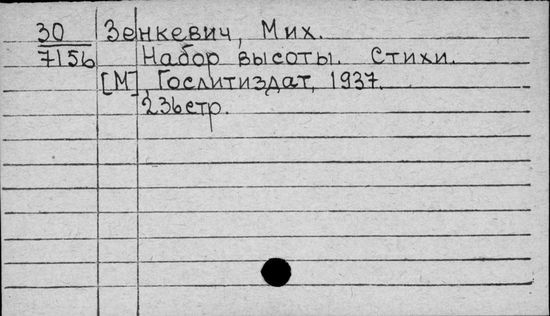 30 Зенкевич, Мих.
7156 Набор высоты. Стихи.
[М], Гослитиздат, 1937.
236стр.